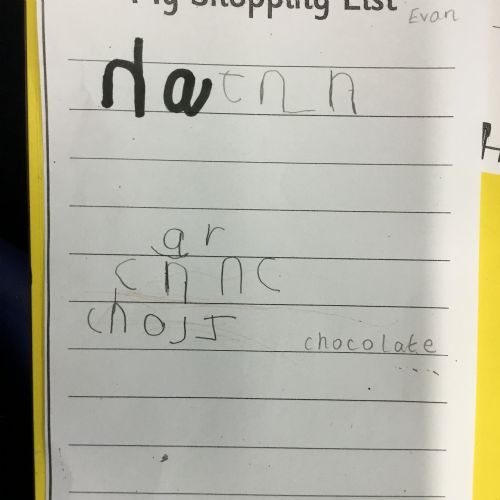 My Shopping List Evan
Ha c n n
a r
c n n c
chojj
chocolate